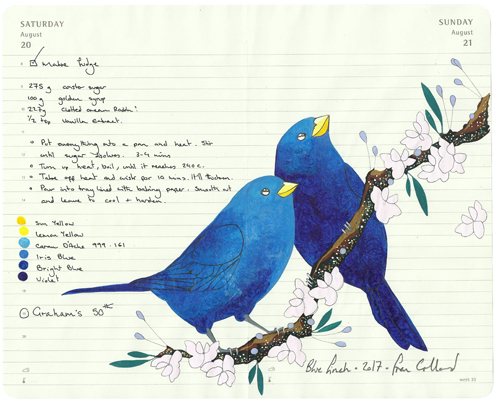 SATURDAY
August
20
SUNDAY
August
21
Make fudge
275 g caster sugar
100 g golden syrup
225g Clotted cream Rodda!
1/2 tsp vanilla extract.
Put everything into a pan and heat. Stir
until sugar dissolves. 3-4 mins
Turn up heat, boil, until it reaches
Take off heat and wisk for 10 mins. It'll thicken.
Pour into tray lined with baking paper. Smooth out
and leave to cool + harden.
Sun Yellow
Lemon Yellow
Caran D'Ache 999. 161
Iris Blue
Bright Blue
Violet
Graham's 50th
Blue Finch · 2017 · Fran Collard
week 33